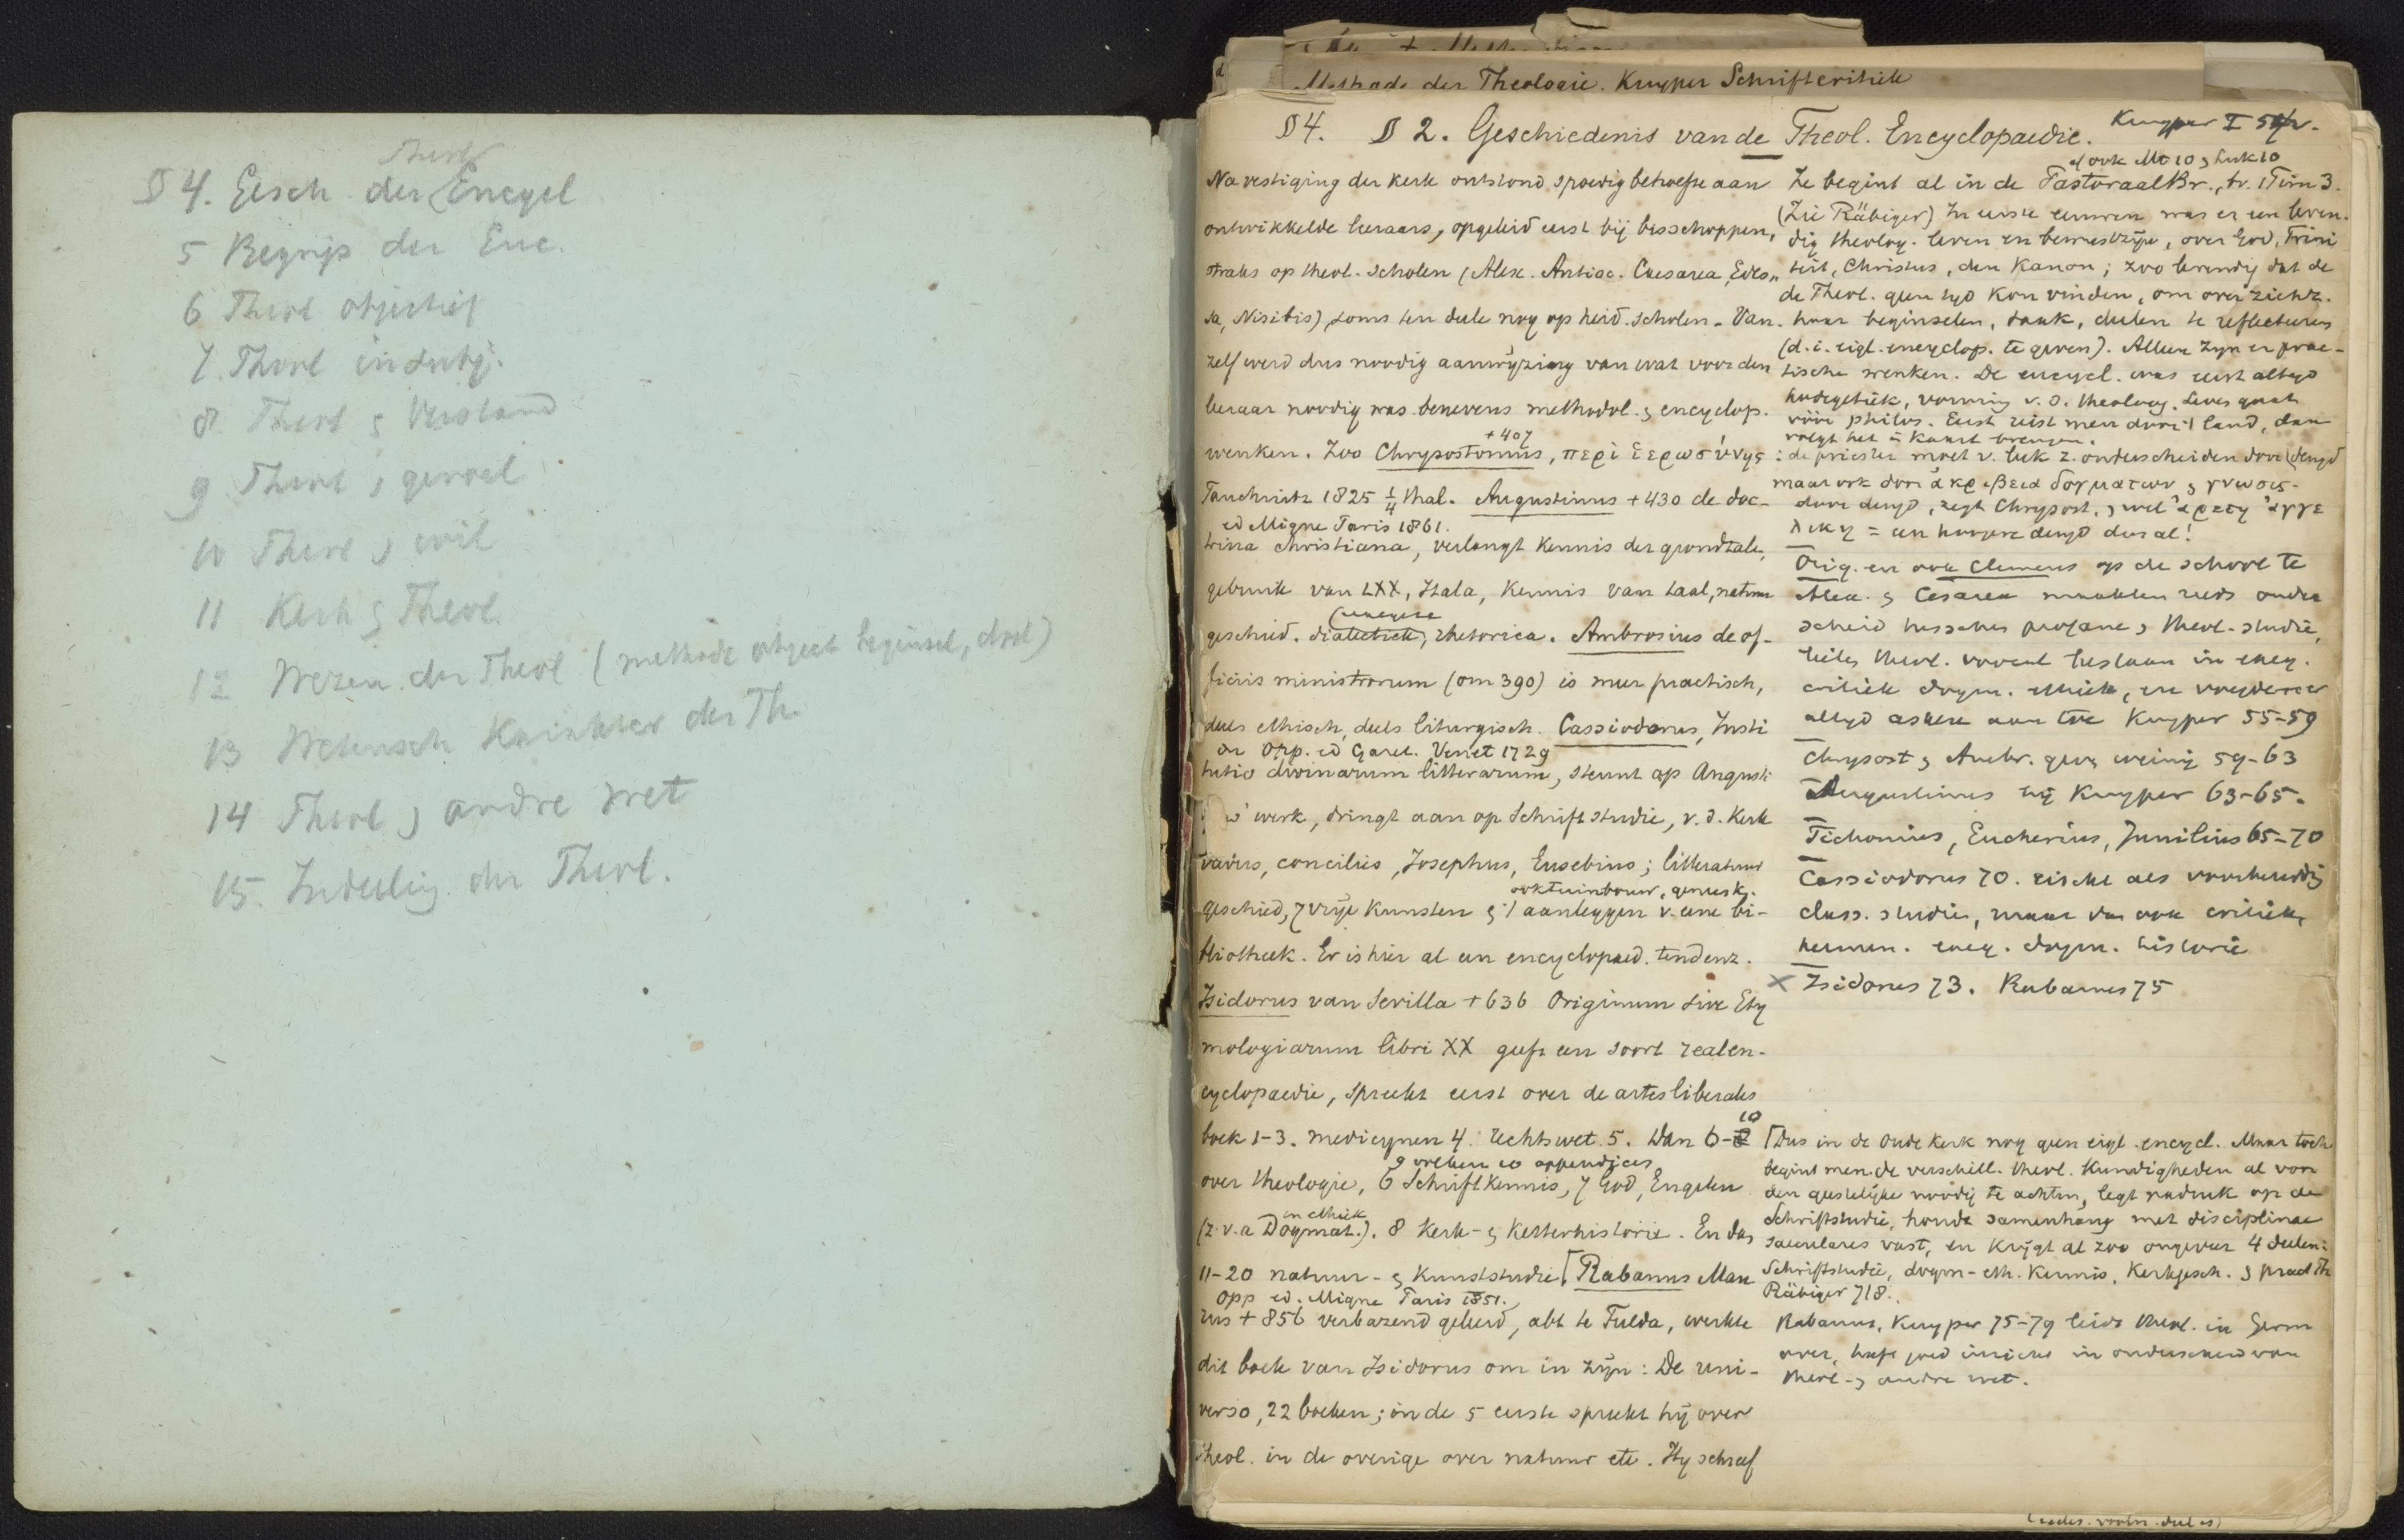 § 4. Gesch. der Theol Encycl
5 Begrip der Enc.
6 Theol objectief
7. Theol en subj.
8 Theol & Verstand
9 Theol & gevoel
10 Theol & wil
11 Kerk & Theol.
12 Wezen der Theol (methode object beginsel, doel)
13 Wetensch Karakter der Th.
14 Theol & andre wet
15. Indeeling der Theol.
Methode der Theologie. Kuyper Schriftcritiek
§ 4. § 2. Geschiedenis van de Theol. Encyclopaedie. Kuyper I
Na vestiging der kerk ontstond spoedig behoefte aan
ontwikkelde leeraars, opgeleid eerst bij bisschoppen,
straks op theol. scholen (Alex. Antioc. Caesarea, Edes„
sa, Nisibis), soms ten deele nog op heid. scholen. Van
zelf werd dus noodig aanwijzing van wat voor den
leeraar noodig was benevens methodol. & encyclop.
+ 407
wenken. Zoo Chrysostomus, περὶ ἱερωσύνης
Tauchnitz 1825 1/4 thal. Augustinus + 430 de doc-
ed Migne Paris 1861.
trina christiana, verlangt kennis der grondtale,
gebruik van LXX, Itala, kennis van taal, natuur
geschied. dialectiek, rhetorica. Ambrosius de of-
ficiis ministrorum (om 390) is meer practisch,
deels ethisch, deels liturgisch. Cassiodorus, Insti
Opp. ed Garet. Venet 1729
tutio divinarum litterarum, steunt op Augusti
werk, dringt aan op Schriftstudie, v. d. Kerk
vaders, concilies, Josephus, Eusebius; litteratuur
ook tuinbouw, geneesk.
geschied, 7 vrije kunsten & 't aanleggen v. eene bi-
bliotheek. Er is hier al een encyclopaed. tendenz.
Isidorus van Sevilla + 636 Originum sive Ety
mologiarum libri XX geeft een soort realen-
cyclopaedie, spreekt eerst over de artes liberales
boek 1-3. medicynen 4. rechtswet. 5. Dan 6- 10
over theologie, 6 Schriftkennis, 7 God, Engelen
en ethiek
(z. v. a Dogmat.). 8 Kerk- & Ketterhistorie. En dan
11-20 natuur- & kunststudie [Rabanus Mau
Opp ed. Migne Paris 1851.
rus + 856 verbazend geleerd, abt te Fulda, werkte
dit boek van Isidorus om in zijn: De uni-
verso, 22 boeken; in de 5 eerste spreekt hij over
theol. in de overige over natuur etc. Hij schreef
cf ook Mt 10 & Luk 10
Ze begint al in de Pastoraal Br., tr. 1 Tim 3.
(Zie Räbiger) In eerste eeuwen was er een leven-
dig theolog. leven en bewustzijn, over God, Trini
teit, Christus, den Kanon; zoo levendig dat de
de Theol. geen tijd kon vinden, om over zichz.
haar beginselen, taak, deelen te reflecteeren
(d. i. eigl. encyclop. te geven). Alleen zijn er prac-
tische wenken. De encycl. was eerst altijd
hodegetiek, vorming v. d. theoloog. Leven gaat
vóór philos. Eerst reist men door 't land, dan
volgt het in kaart brengen.
: de priester moet v. leek z. onderscheiden door deugd
maar ook door ἀκρίβεια δογματων & γνωσις.
deze deugd, zegt Chrysost. & wel ἀρετη ἀγγε
λικη = een hoogere deugd dus al!
Orig. en ook Clemens op de school te
Alex. & Cesarea maakten reeds onder
scheid tusschen profane & theol. studie,
lieten theol. vooral bestaan in exeg.
critiek dogm. ethiek, en voegden er
altijd ascese aan toe Kuyper 55-59
Chrysost & Ambr. geven weinig 59-63
Augustinus bij Kuyper 63-65.
Tichonius, Eucherius, Junilius 65-70
Cassiodorus 70. eischt als voorbereidg
class. studie, maar dan ook critiek,
hermen. exeg. dogm. historie
X Isidorus 73. Rabanus 75
[Dus in de oude kerk nog geen eigl. encycl. Maar toch
begint men de verschill. theol. kundigheden al voor
den geestelijke noodig te achten, legt nadruk op de
Schriftstudie, houdt samenhang met disciplinae
saeculares vast, en krijgt al zoo ongeveer 4 deelen:
Schriftstudie, dogm-eth. kennis, Kerkgesch. & pract Th
Räbiger 718.
Rabanus, Kuyper 75-79 leidt theol. in Germ
over, heeft goed inzicht in onderscheid van
theol- & andre wet.